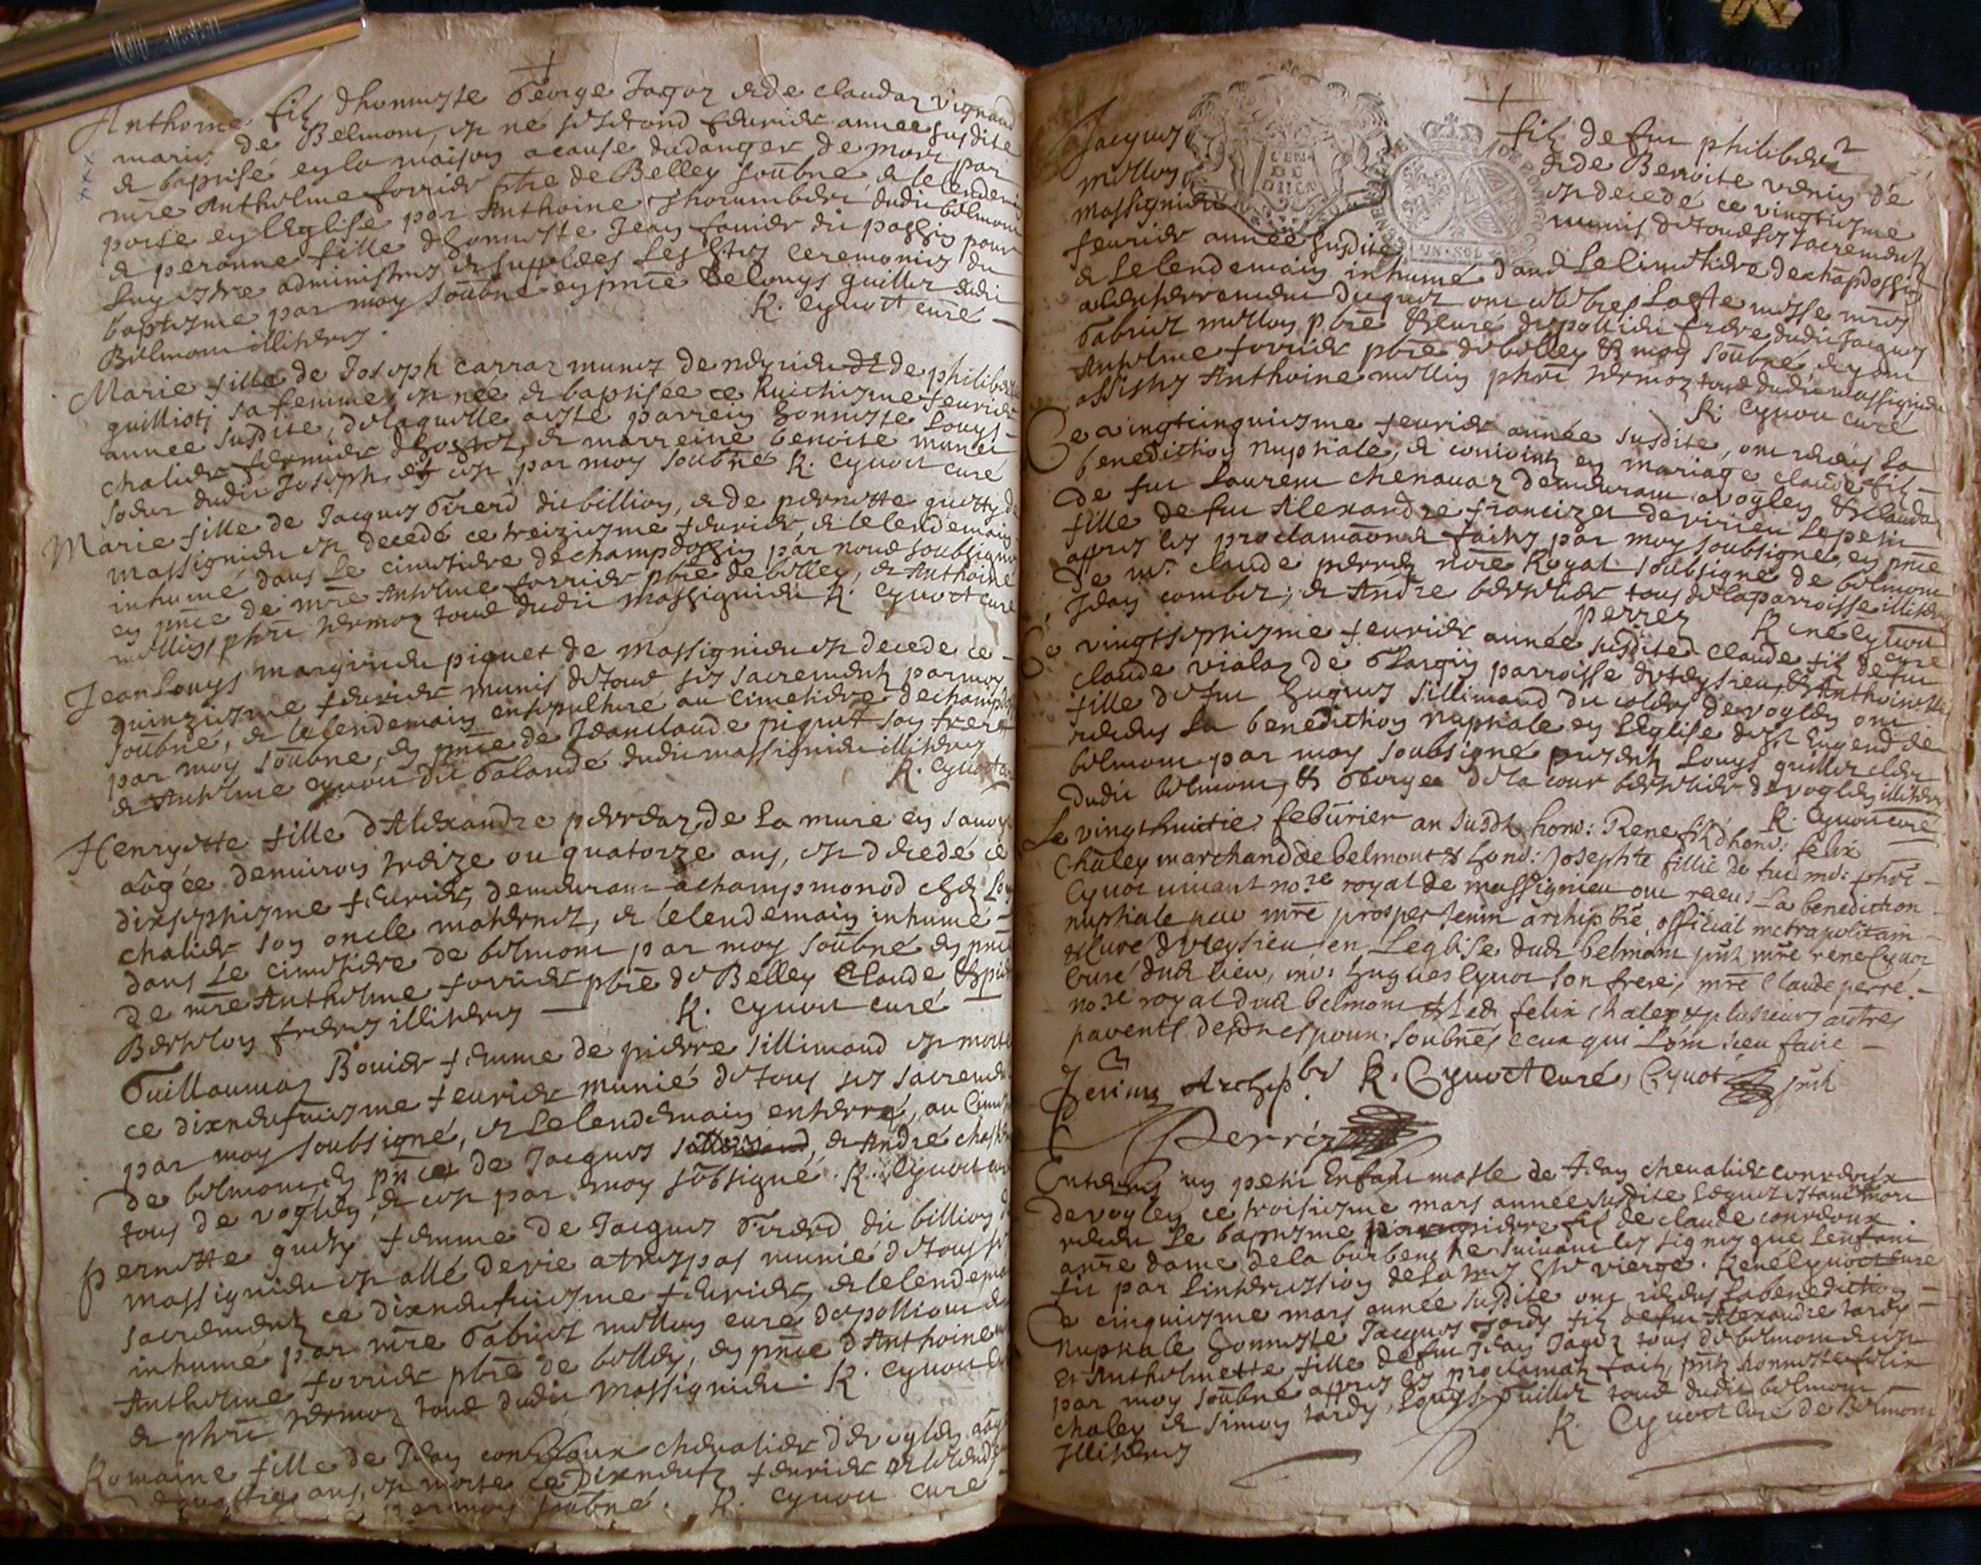 Anthoine fils dhonneste George Jagoz & de claudaz vignand
mariés de Belmont, est né le second feuvrier année susdite
& baptisé en la maison a cause du danger de mort par
mre Anthelme forrier pbre de Belley soubné, & le lendemain
porté en l'Eglise par Anthoine thorumbert dudit belmont
& peronne fille dhonneste Jean favier du passin pour
luy estre administrés & supplées les Stes ceremonies du
baptesme par moy soubné en pnce de Louys guillet dudit
Belmont illiterés. R. Cyuoct curé
Marie fille de Joseph carraz munet de neyrieu & de philiberte
guilliot sa femme, est née & baptisée ce huictiesme feuvrier
année susdite, de laquelle a esté parrein honneste Louys
chalier fermier dhostel, & marreine benoite munet
soeur dudit Joseph, et est par moy soubné R. Cyuoct curé
Marie fille de Jacques Girerd du billion, & de pernette guetty de
massignieu est decedé ce treiziesme feuvrier & le lendemain
inhumé dans le cimetiere de champdossin par nous soubsigné
en pnce de mre Antelme forrier pbre de belley, & Anthoine
mollin phri termoz tous dudit massignieu R. Cyuoct curé
Jean Louys marguin du piquet de massignieu est decedé ce
quinziesme feuvrier munis de tous ses sacrements par moy
soubné, & le lendemain ensepulturé au cimetiere de champdossin
par moy soubné, en pnce de Jean claude piquet son frere
& Antelme Cyuoct du Galande dudit massignieu illiterés
R. Cyuoct curé
Henryette fille d'Alexandre perreaz de La mure en savoye
aagée denuiron treize ou quatorze ans, est decedé ce
dixseptiesme feuvrier, demeurant a champmonod chez Louys
chalier son oncle maternel, & le lendemain inhumé
dans Le cimetiere de belmont par moy soubné en pnce
de mre Anthelme forrier pbre de Belley Claude & pierre
Bertelon freres illiterés R. Cyuoct curé
Guillaumaz Bouier femme de pierre sillimand est morte
ce dixneufuiesme feuvrier munié de tous ses sacrements
par moy soubsigné, & Le lendemain enterré, au cimetiere
de belmont en pnce de Jacques & André
tous de vogley & est par moy soubsigné. R. Cyuoct curé
Pernette guetty femme de Jacques Girerd du billion de
massignieu est allé de vie a trespas munie de tous ses
sacrements ce dixneufuiesme feuvrier, & le lendemain
inhumé par mre Gabriel mollin curé de pollieu &
Anthelme forrier pbre de belley, en pnce d'Anthoine
& phri termoz tous dudit massignieu. R. Cyuoct curé
Romaine fille de Jean conversoux chevalier de vogley aagé
de quattre ans, est morte ce dixneufz feuvrier & le lendemain
par moy soubné. R. Cyuoct curé
Jacques fils de feu philibert
mollin & de Benoite venin de
massignieu est decedé ce vingtiesme
feuvrier année susdite munis de tous ses sacrements
& Le lendemain inhumé dans Le cimetiere de champdossin
a l'enterrement duquel ont celebrés La Ste messe mres
Gabriel mollin pbre & curé de pollieu frere dudit Jacques
Antelme forrier pbre de belley & moy soubné & y ont
assistés Anthoine mollin phri termoz tous dudit massignieu
R. Cyuoct curé
Ce vingtcinquiesme feuvrier année susdite, ont receus La
benediction nuptiale, & conioints en mariage claude fils
de feu Laurent chenavaz demeurant a vogley & claudaz
fille de feu Alexandre francizet de virieu Le petit
appres les proclamaons faites par moy soubsigné, en pnce
de mr. claude perrez nore Royal soubsigné de belmont
Jean combet, & André berthelier tous de la parroisse illiterés
perrez R. né Cyuoct curé
Ce vingtseptiesme feuvrier année susdite claude fils de feu
claude vialaz de Chargin parroisse de veysieu, & Anthoinette
fille de feu hugues sillimand du colers de vogley ont
receus La benediction nuptiale en L'Eglise de St Eugend de
belmont par moy soubsigné presents Louys guillet clerc
dudit belmont, & George de la cour berthelier de vogley illiterés
R. Cyuoct curé
Le vingthuitie. feburier an susdt hono: Rene fils dhono: felix
Chaley marchand de belmont & hono: Josephte fillie de feu me: phri
Cyuot uiuant no.re royal de massignieu ont receu La benediction
nuptiale par mre prosper Jenin archipbre, official metrapolitain
& curé de veysieu en Leglise dudt belmont pnt mre rene Cyuot
curé dudt lieu, mo: hugues Cyuot son frere, mre Claude perre.
no.re royal dudt belmont & led. felix chaley & plusieurs autres
parents desdits espoux soubnes ceux qui L'ont sceu faire
Jenin Archipbr R. Cyuoct curé, Cyuot pnt
Perrez
Enterré un petit Enfant masle de Jean chevalier converdoux
de vogley ce troisiesme mars année susdite Lequel estant mort
receu Le baptesme par pierre fils de claude converdoux
a nre dame de la burbanche suivant les signes que L'enfant
fit par L'intercession de La tres Ste vierge. René Cyuoct curé
Ce cinquiesme mars année susdite ont receus La benediction
Nuptiale honneste Jacques tardy fils de feu Alexandre tardy
Et Anthelmette fille de feu Jean Jagoz tous de belmont & est
par moy soubné appres les proclamaons faites, pnts honneste felix
chaley & simon tardy, Louys Guillet tous dudit belmont
Illiterés R. Cyuoct Curé de Belmont